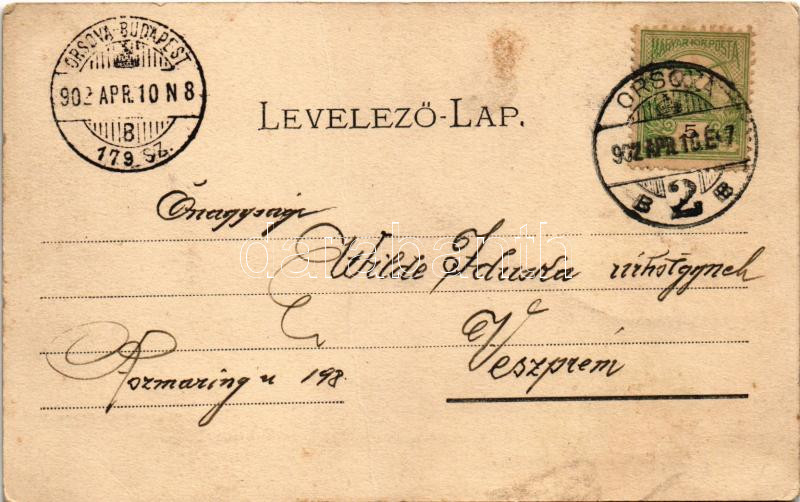 ORSOVA-BUDAPEST
902 APR. 10 N 8
B
179. SZ.
MAGYAR KIR. POSTA
5
ORSOVA
902 APR. 10. E 7
B 2 B
LEVELEZŐ-LAP.
Őnagysága
Wilde Iduska úrhölgynek
Veszprém
Rozmaring u 198.
darabanth